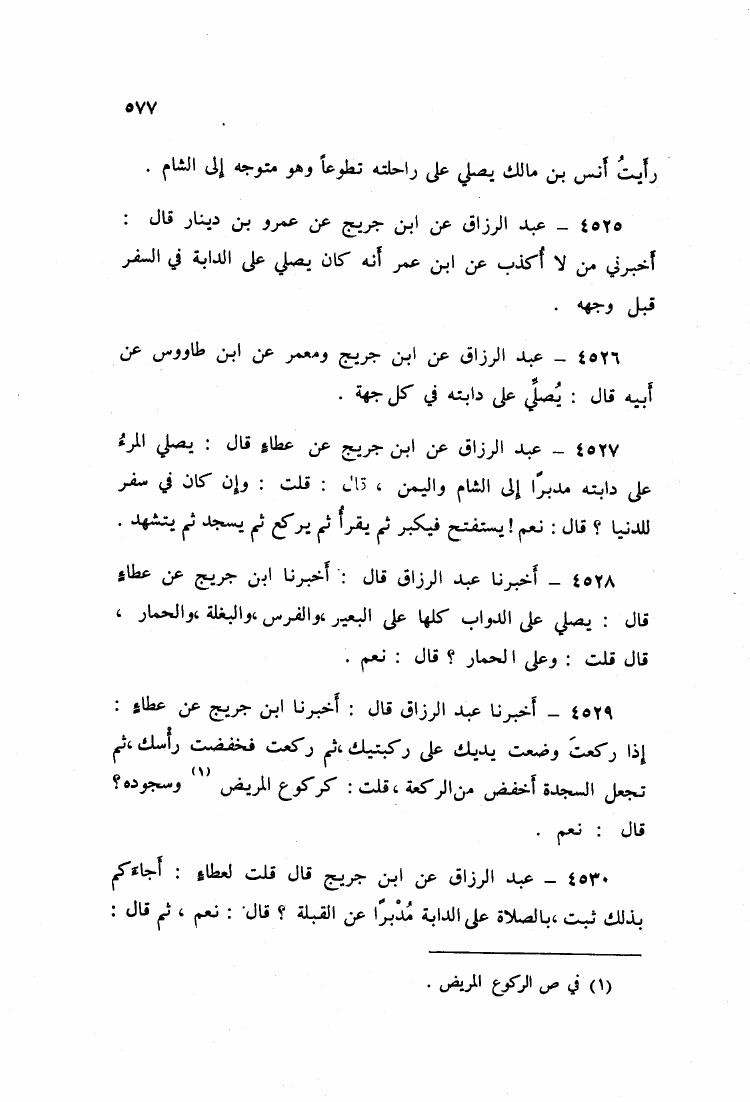 ٥٧٧
رأَيتُ أَنس بن مالك يصلي على راحلته تطوعاً وهو متوجه إلى الشام .
٤٥٢٥ – عبد الرزاق عن ابن جريج عن عمرو بن دينار قال :
أَخبرني من لا أُكذب عن ابن عمر أَنه كان يصلي على الدابة في السفر
قبل وجهه .
٤٥٢٦ – عبد الرزاق عن ابن جريج ومعمر عن ابن طاووس عن
أَبيه قال : يُصلِّي على دابته في كل جهة .
٤٥٢٧ – عبد الرزاق عن ابن جريج عن عطاءٍ قال : يصلي المرءُ
على دابته مدبرًا إلى الشام واليمن ، قال : قلت : وإن كان في سفر
للدنيا ؟ قال : نعم ! يستفتح فيكبر ثم يقرأُ ثم يركع ثم يسجد ثم يتشهد .
٤٥٢٨ – أَخبرنا عبد الرزاق قال : أَخبرنا ابن جريج عن عطاءٍ
قال : يصلي على الدواب كلها على البعير ،والفرس ،والبغلة ،والحمار ،
قال قلت : وعلى الحمار ؟ قال : نعم .
٤٥٢٩ – أَخبرنا عبد الرزاق قال : أَخبرنا ابن جريج عن عطاءٍ :
إذا ركعتَ وضعت يديك على ركبتيك ،ثم ركعت فخفضت رأْسك ،ثم
تجعل السجدة أَخفض من الركعة ، قلت : كركوع المريض (١) وسجوده ؟
قال : نعم .
٤٥٣٠ – عبد الرزاق عن ابن جريج قال قلت لعطاءٍ : أَجاءَكم
بذلك ثبت ،بالصلاة على الدابة مُدْبرًا عن القبلة ؟ قال : نعم ، ثم قال :
(١) في ص الركوع المريض .